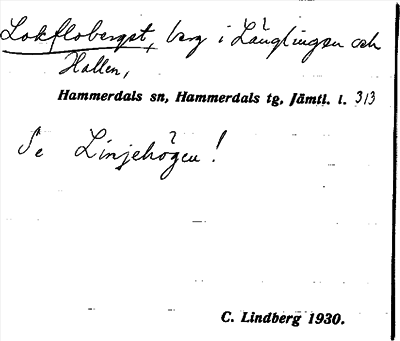 Lokfloberget, berg i Långlingen och
Hallen,
Hammerdals sn, Hammerdals tg, Jämtl. l. 313
Se Linjehögen!
C. Lindberg 1930.